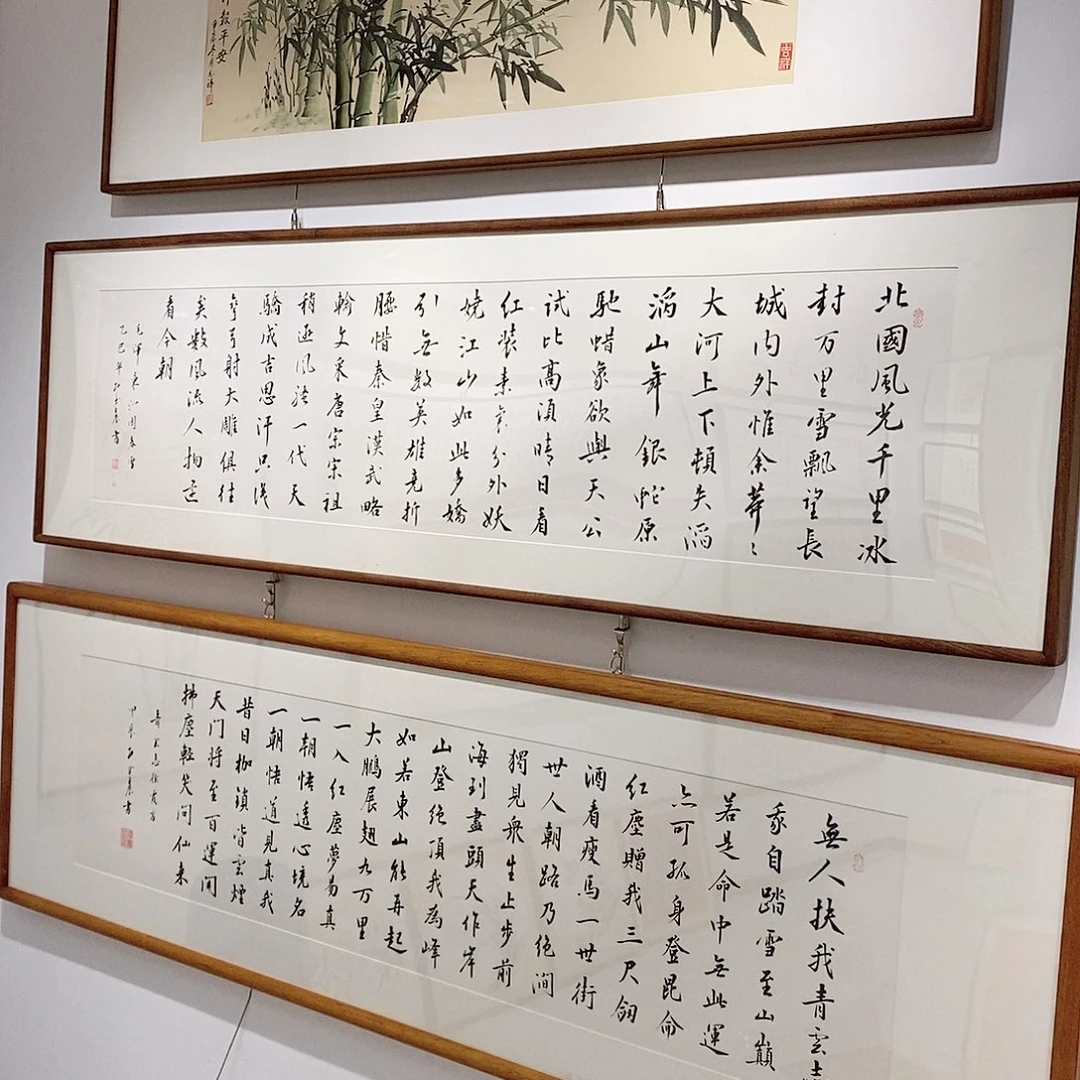 報平安
吉祥
北國風光千里冰
封万里雪飄望長
城内外惟余莽〻
大河上下頓失滔
滔山舞銀蛇原
馳蜡象欲與天公
試比高須晴日看
红装素裹分外妖
嬈江山如此多嬌
引無数英雄竞折
腰惜秦皇漢武略
輸文采唐宗宋祖
稍逊風骚一代天
驕成吉思汗只识
弯弓射大雕俱往
矣数風流人物还
看今朝
毛泽东沁园春雪
乙巳年书
無人扶我青雲志
我自踏雪至山巔
若是命中無此運
亦可孤身登昆侖
红塵贈我三尺劍
酒看瘦馬一世街
世人朝路乃绝涧
獨見衆生止步前
海到盡頭天作岸
山登绝頂我為峰
如若東山能再起
大鵬展翅九万里
一入红塵夢易真
一朝悟透心境名
一朝悟道見真我
昔日枷鎖皆雲煙
天门将至百運间
拂塵輕笑问仙来